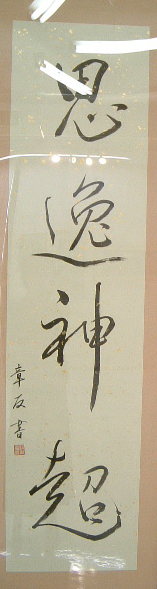 思逸神超
章友書